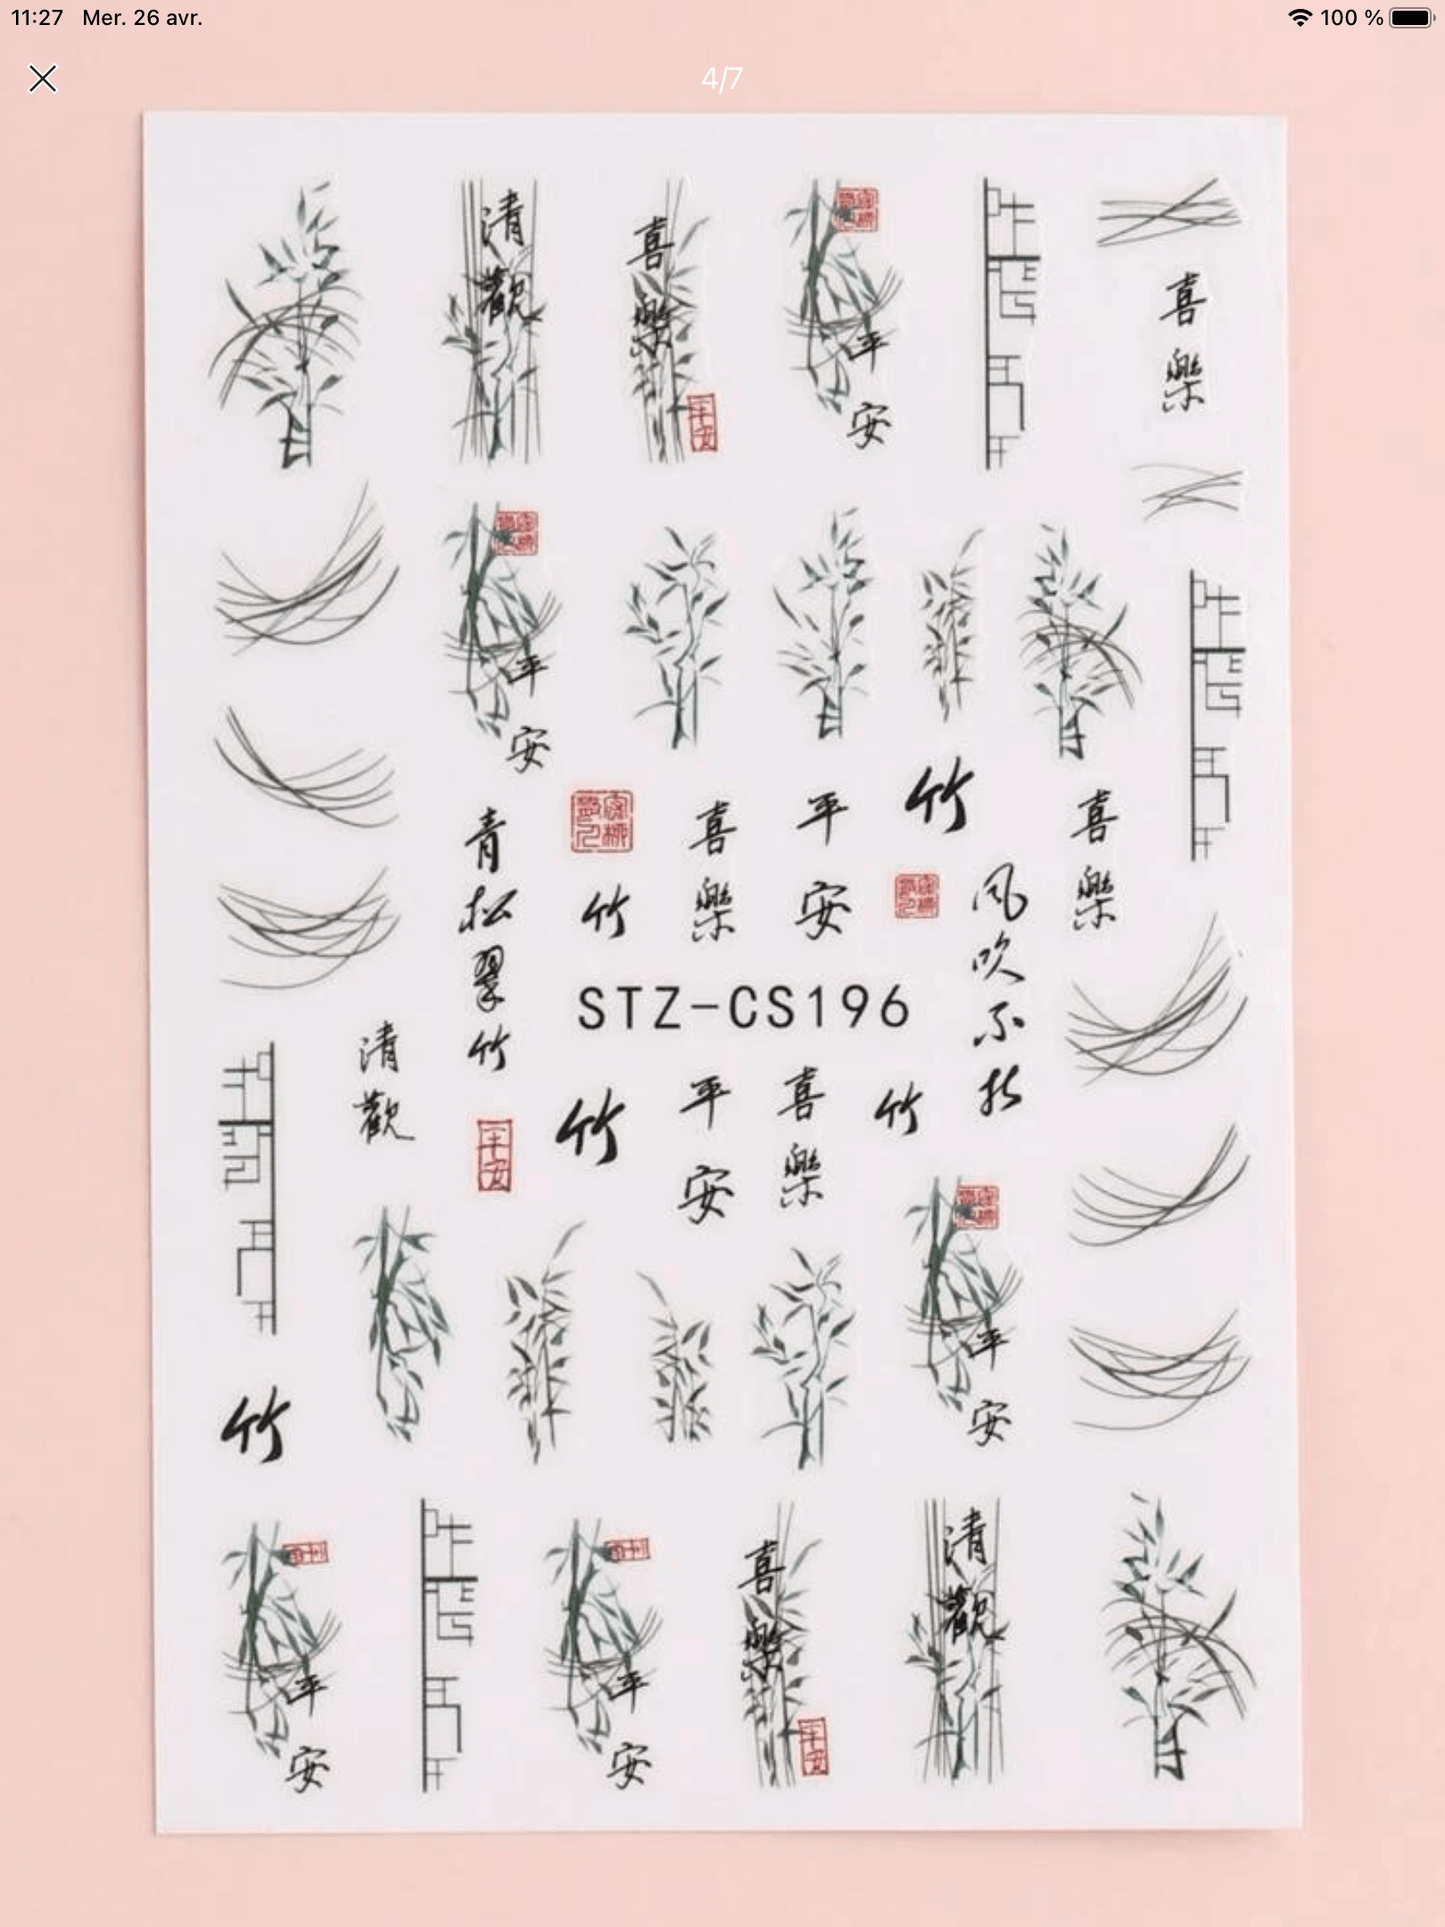 11:27 Mer. 26 avr. 100 %
4/7
清歡
喜樂
平安
平安
喜樂
平安
青松翠竹
竹
喜樂
平安
竹
喜樂
風吹不折
STZ-CS196
清歡
平安
竹
平安
喜樂
竹
平安
竹
平安
平安
喜樂
平安
清歡